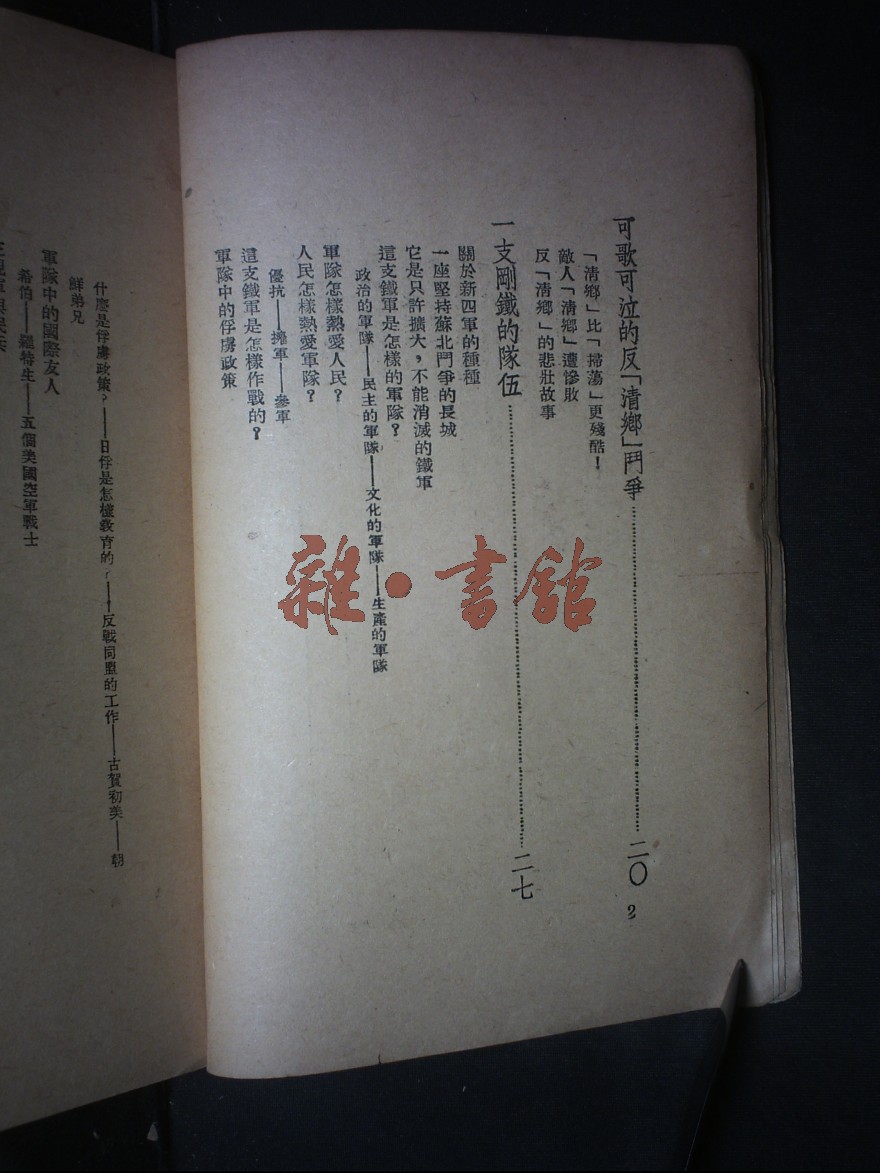 可歌可泣的反「清鄉」鬥爭……二〇
「清鄉」比「掃蕩」更殘酷!
敵人「清鄉」遭慘敗
反「清鄉」的悲壯故事
一支剛鐵的隊伍……二七
關於新四軍的種種
一座堅持蘇北鬥爭的長城
它是只許擴大,不能消滅的鐵軍
這支鐵軍是怎樣的軍隊?
政治的軍隊——民主的軍隊——文化的軍隊——生產的軍隊
軍隊怎樣熱愛人民?
人民怎樣熱愛軍隊?
優抗——擁軍——參軍
這支鐵軍是怎樣作戰的?
軍隊中的俘虜政策
2
什麼是俘虜政策?——日俘是怎樣敎育的?——反戰同盟的工作——古賀初美——朝
鮮弟兄
軍隊中的國際友人
希伯——羅特生——五個美國空軍戰士
雜·書館